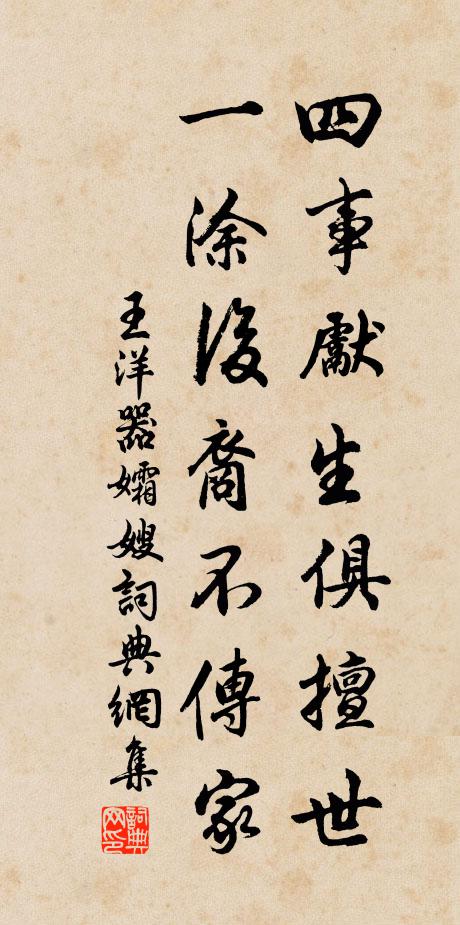 四事獻生俱擅世
一涂後裔不傳家
王洋器孀嫂詞典網集
詞典網印